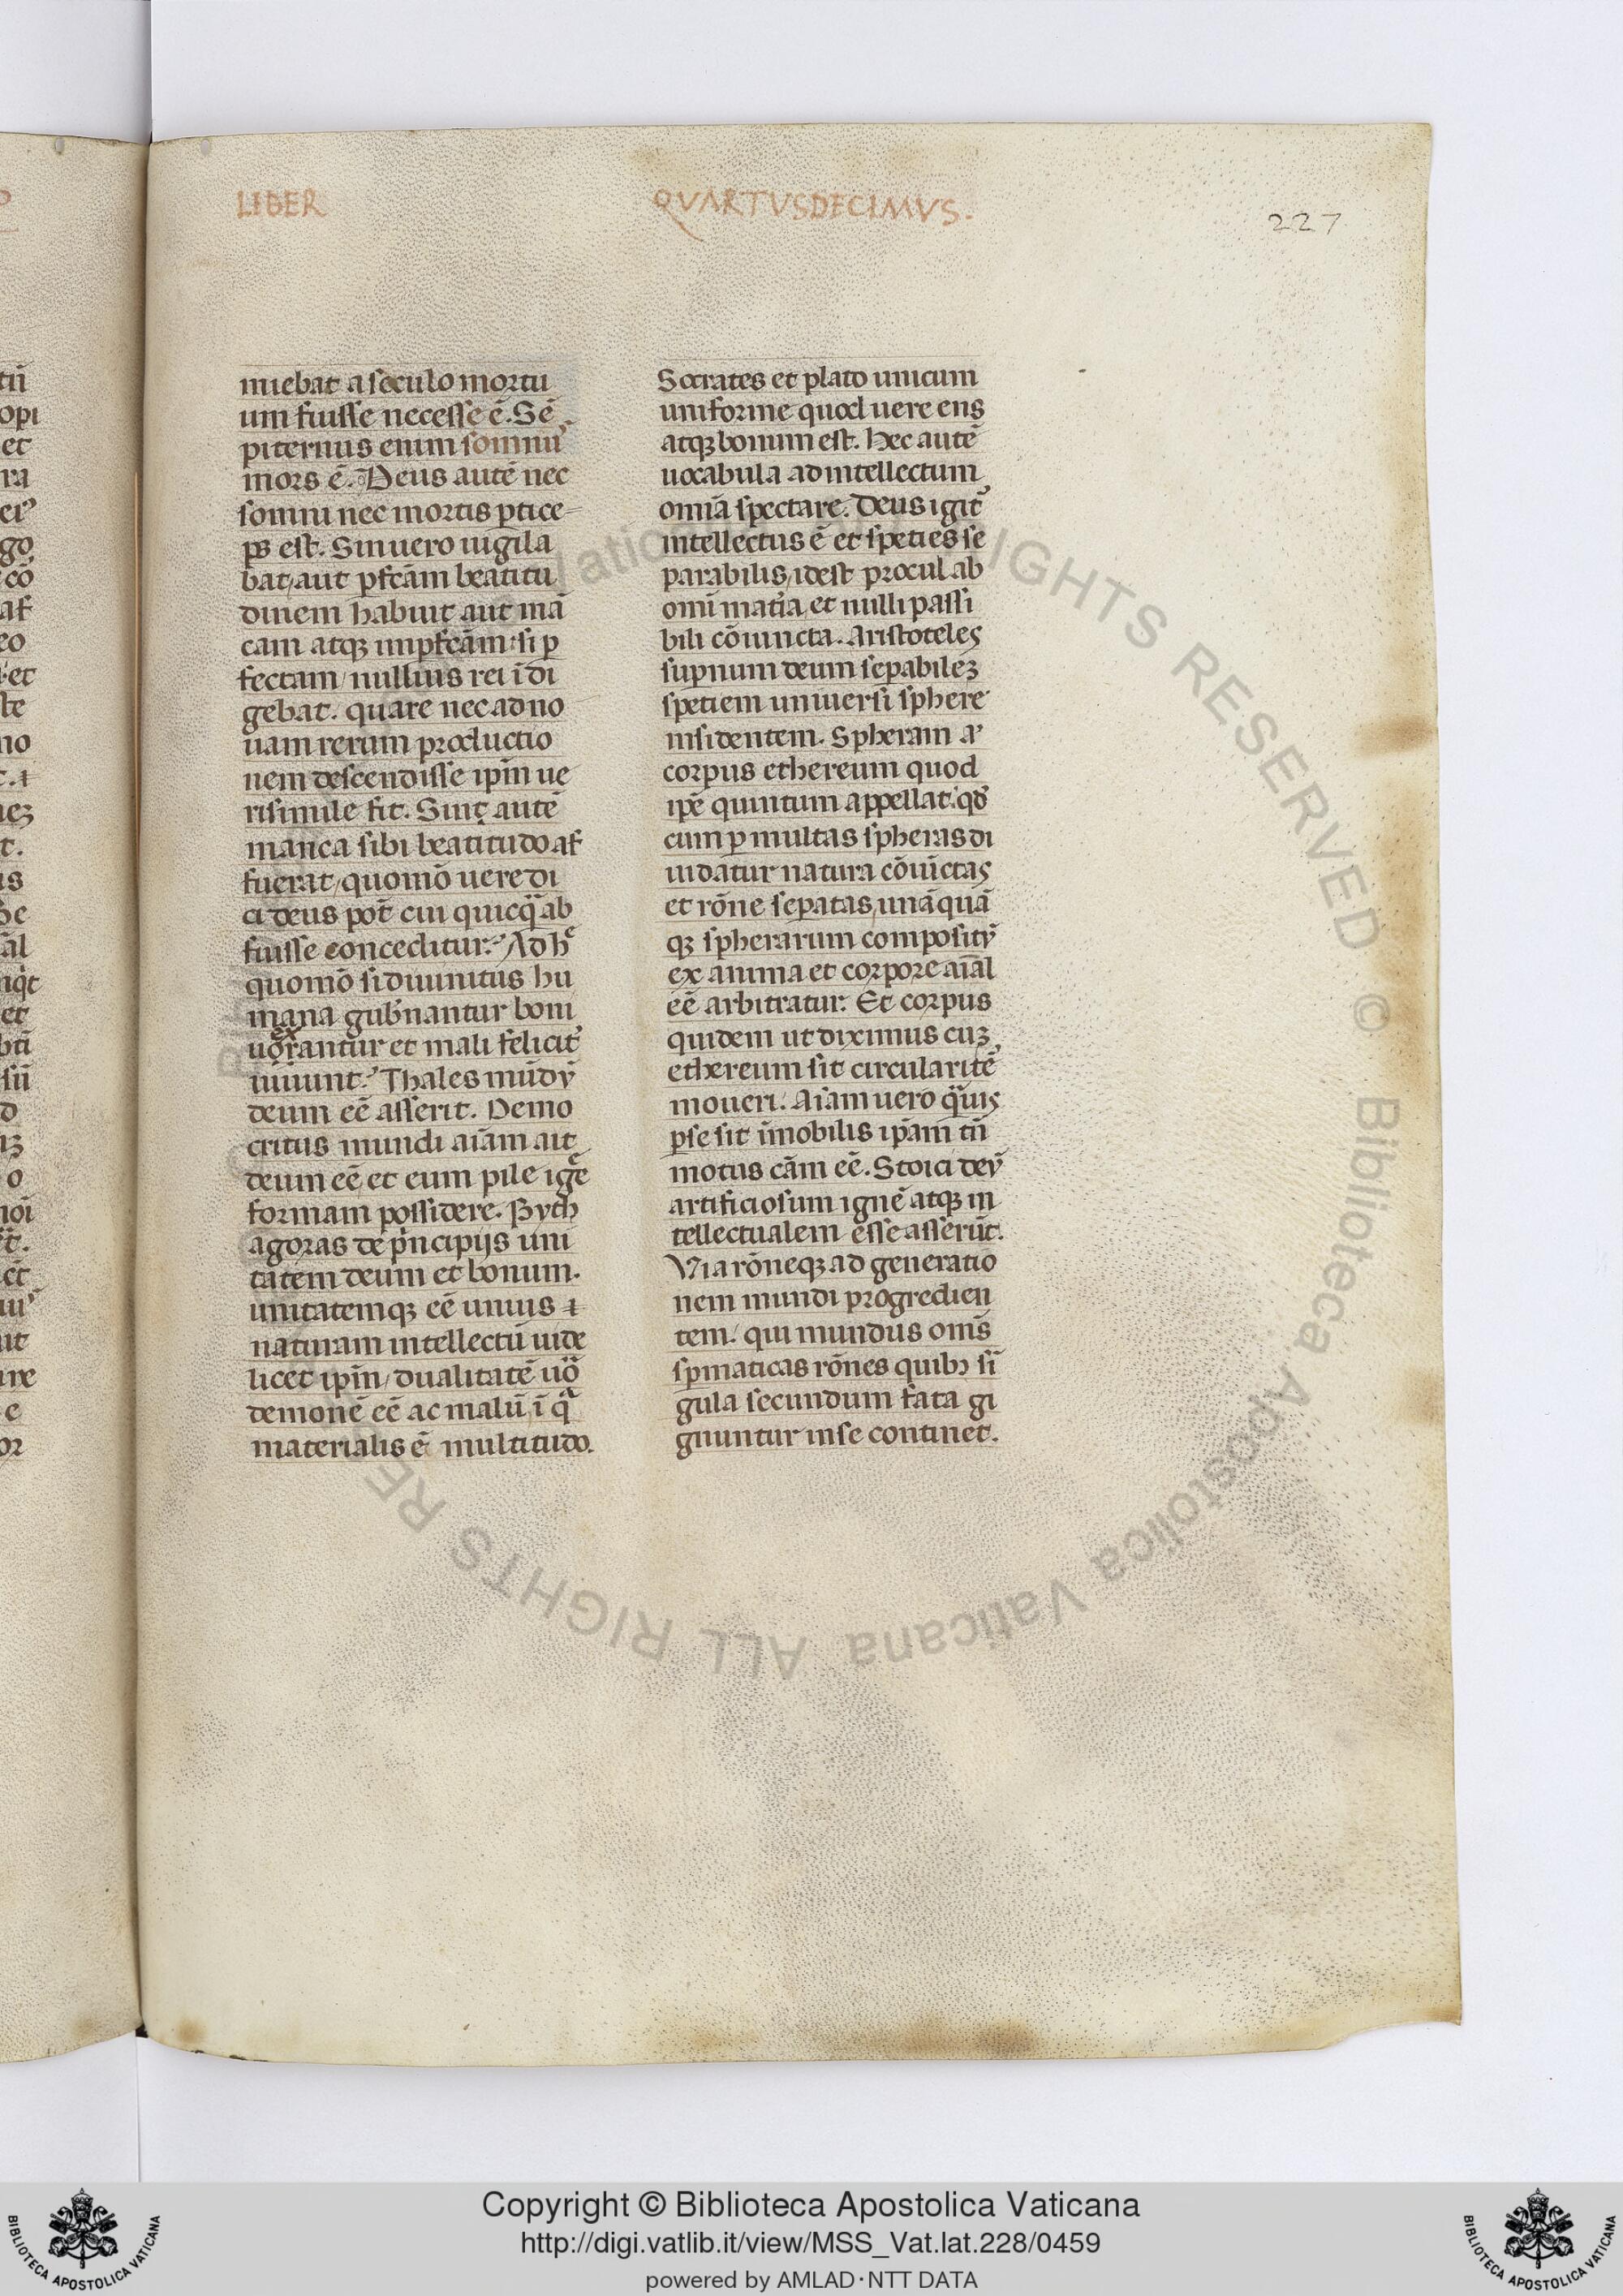 LIBER QUARTUSDECIMUS.
227
miebat a seculo mortu
um fuisse necesse ē. Sē
piternus enim somnuʼ
mors ē. Deus autē nec
somni nec mortis ꝑtice
ps est. Sin uero uigila
bat, aut ꝑfcām beatitu
dinem habuit aut mā
cam atqꝫ imꝑfcām: si ꝑ
fectam, nullius rei īdi
gebat. quare nec ad no
uam rerum productio
nem descendisse ip̄m ue
risimile fit. Sin autē
manca sibi beatitudo af
fuerat, quomō uere di
ci deus pōt cui quicq̄ ab
fuisse conceditur? Ad hͨ
quomō si diuinitus hu
mana gub̄nantur boni
uexantur et mali felicitʼ
uiuunt? Thales mūdꝰ
deum eē asserit. Demo
critus mundi aīam ait
deum eē et eum pile igᷓe
formam possidere. Pyth
agoras de pͥncipijs uni
tatem deum et bonum.
unitatemqꝫ eē unius ⁊
naturam intellectū uide
licet ip̄m, dualitatē uo͛
demonē eē ac malū, ī qᷓ
materialis ē multitudo.
Socrates et plato unicum
uniforme quod uere ens
atqꝫ bonum est. Hec autē
uocabula ad intellectum
omīa spectare. Deus igit᷑
intellectus ē et speties se
parabilis, idest procul ab
omī mat͛ia et nulli passi
bili cōiuncta. Aristoteles
suꝑnum deum seꝑabileꝫ
spetiem uniuersi sphere
insidentem. Spheram āʼ
corpus ethereum quod
ipē quintum appellat: qď
cum ꝑ multas spheras di
uidatur natura cōiūctas
et rōne seꝑatas, unāquā
qꝫ spherarum compositꝰ
ex anima et corpore aīal
eē arbitratur. Et corpus
quidem ut diximus cuꝫ
ethereum sit circularitʼ
moueri. Aīam uero qᷓuis
ꝑse sit īmobilis ipām tn̄
motus cām eē. Stoici deꝰ
artificiosum ignē atqꝫ in
tellectualem esse asserūt.
Via rōneqꝫ ad generatio
nem mundi progredien
tem. qui mundus om̄s
sꝑmaticas rōnes quibꝫ sī
gula secundum fata gi
gnuntur in se continet.
Copyright © Biblioteca Apostolica Vaticana
http://digi.vatlib.it/view/MSS_Vat.lat.228/0459
powered by AMLAD·NTT DATA